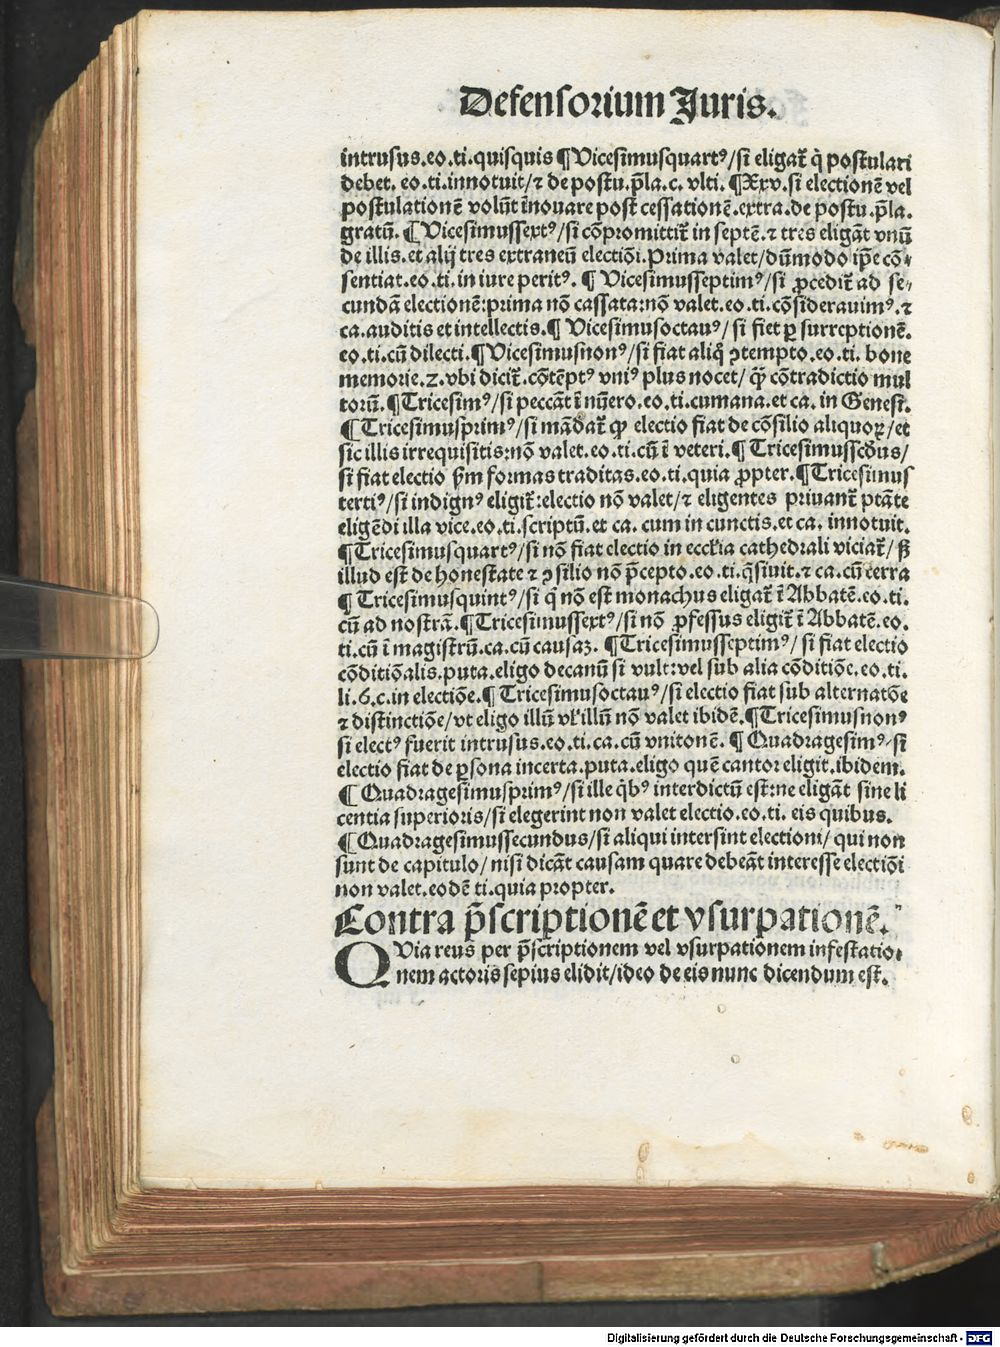 Defensorium Juris.
intrusus.eo.ti.quisquis ¶ Vicesimusquartꝰ/si eligat̄ q̇ postulari
debet. eo.ti.innotuit/⁊ de postu.p̄la.c. vlti. ¶ Xxv.si electionē vel
postulationē volūt īnouare post cessationē.extra.de postu.p̄la.
gratū. ¶ Vicesimussextꝰ/si cōpromittit̄ in septē.⁊ tres eligāt vnū
de illis.et alij tres extraneū electiōi.Prima valet/dūmodo ip̄e cō-
sentiat.eo.ti.in iure peritꝰ. ¶ Vicesimusseptimꝰ/si ꝓcedit̄ ad se-
cundā electionē:prima nō cassata:nō valet.eo.ti.cōsiderauimꝰ.⁊
ca.auditis et intellectis.¶ Vicesimusoctauꝰ/ si fiet ꝑ surreptionē.
eo.ti.cū dilecti.¶ Vicesimusnonꝰ/si fiat aliq̊ ꝯtempto.eo.ti. bone
memorie.2.vbi dicit̄.cōtēptꝰ vniꝰ plus nocet/ q̄ȝ cōtradictio mul
torū.¶ Tricesimꝰ/si peccāt ī nūero.eo.ti.cumana.et ca. in Genesi.
¶ Tricesimusprimꝰ/si mādat̄ ꝙ electio fiat de cōsilio aliquoꝝ/et
sic illis irrequisitis:nō valet.eo.ti.cū ī veteri.¶ Tricesimusscd̄us/
si fiat electio ẜm formas traditas.eo.ti.quia ꝓpter.¶ Tricesimus
tertiꝰ/si indignꝰ eligit̄:electio nō valet/⁊ eligentes priuant̄ ptāte
eligēdi illa vice.eo.ti.scriptū.et ca. cum in cunctis.et ca. innotuit.
¶ Tricesimusquartꝰ/si nō fiat electio in eccl̄ia cathedrali viciat̄/ sꝫ
illud est de honestate ⁊ ꝯsilio nō p̄cepto.eo.ti.q̄siuit.⁊ ca.cū terra
¶ Tricesimusquintꝰ/si q̇ nō est monachus eligat̄ ī Abbatē.eo.ti.
cū ad nostrā.¶ Tricesimussextꝰ/si nō ꝓfessus eligit̄ ī Abbatē.eo.
ti.cū ī magistrū.ca.cū causaȝ. ¶ Tricesimusseptimꝰ/ si fiat electio
cōditiōalis.puta.eligo decanū si vult:vel sub alia cōditiōe.eo.ti.
li.6.c.in electiōe.¶ Tricesimusoctauꝰ/si electio fiat sub alternatōe
⁊ distinctiōe/vt eligo illū vl̓ illū nō valet ibidē.¶ Tricesimusnonꝰ
si electꝰ fuerit intrusus.eo.ti.ca.cū vnitonē. ¶ Quadragesimꝰ/si
electio fiat de ꝑsona incerta.puta.eligo quē cantor eligit.ibidem.
¶ Quadragesimusprimꝰ/si ille q̇bꝰ interdictū est:ne eligāt sine li
centia superioris/si elegerint non valet electio.eo.ti. eis quibus.
¶ Quadragesimussecundus/si aliqui intersint electioni/ qui non
sunt de capitulo/ nisi dicāt causam quare debeāt interesse electiōi
non valet.eodē ti.quia propter.
Contra p̄scriptionē et vsurpationē.
QVia reus per p̄scriptionem vel vsurpationem infestatio-
nem actoris sepius elidit/ideo de eis nunc dicendum est.
Digitalisierung gefördert durch die Deutsche Forschungsgemeinschaft - DFG